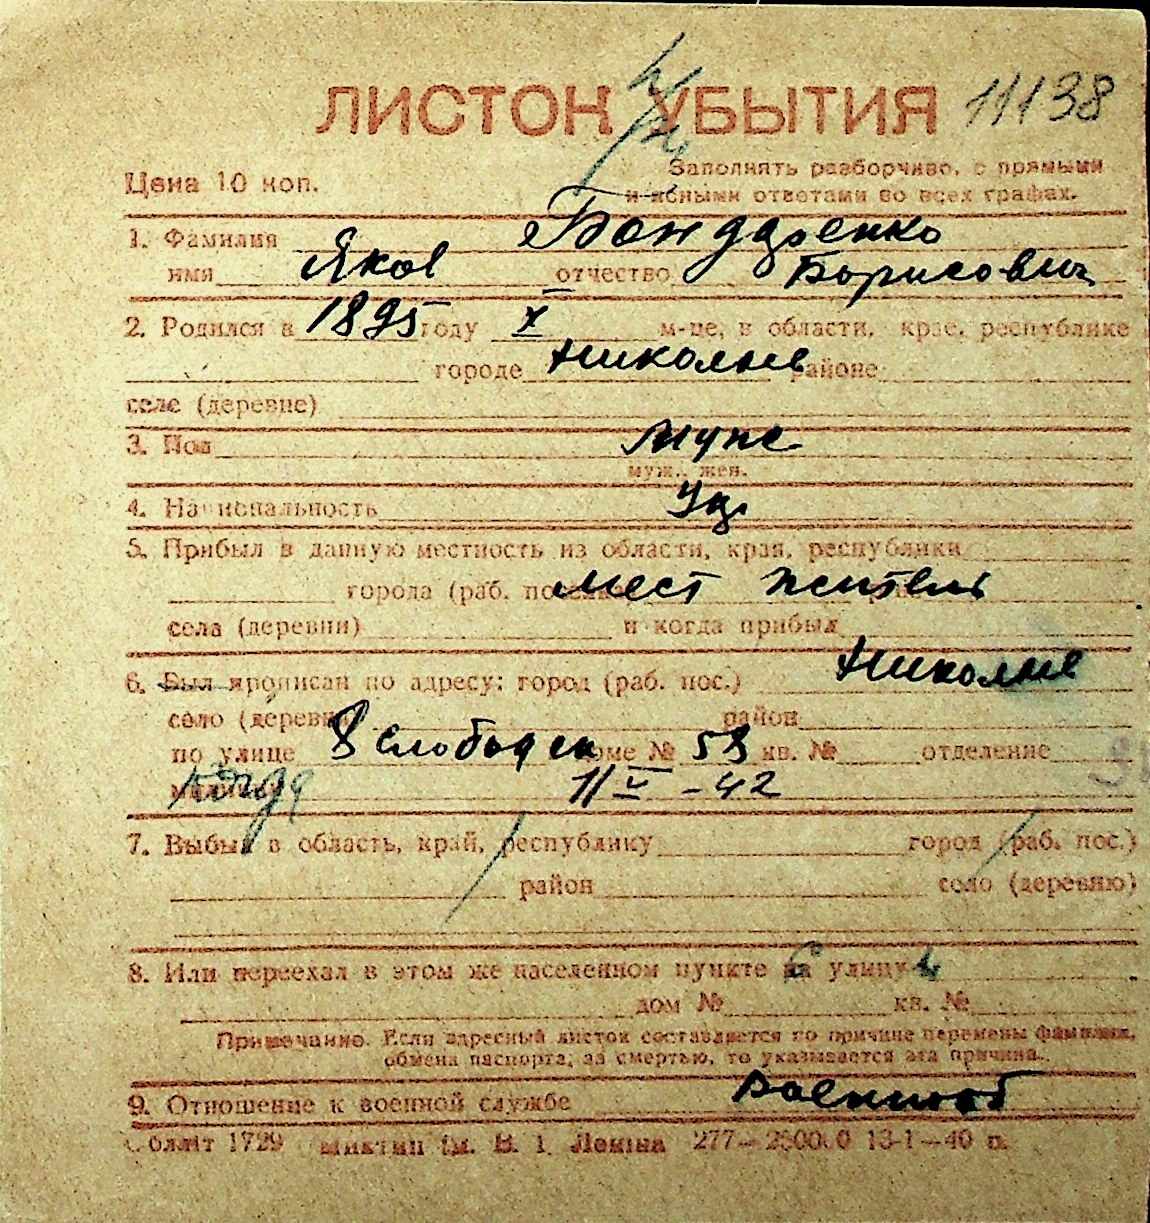 ЛИСТОК УБЫТИЯ 11138
Цена 10 коп.
Заполнять разборчиво, с прямыми
и ясными ответами во всех графах.
1. Фамилия Бондаренко
имя Яков отчество Борисович
2. Родился в 1895 году X м-це, в области, крае, республике
городе Николаев районе
селе (деревне)
3. Пол мужс
муж., жен.
4. Национальность
5. Прибыл в данную местность из области, края, республики
города (раб. мест житель
села (деревни) и когда прибыл
6. Был прописан по адресу: город (раб. пос.) Николаев
село (деревня) район
по улице 8 Слободск доме № 59 кв. № отделение
11 V -42
7. Выбыл в область, край, республику город (раб. пос.)
район село (деревню)
8. Или переехал в этом же населенном пункте на улицу
дом № кв. №
Примечание. Если адресный листок составляется по причине перемены фамилии,
обмена паспорта, за смертью, то указывается эта причина.
9. Отношение к военной службе
Обллит 1729 им. В. І. Леніна 13-1-40 п.